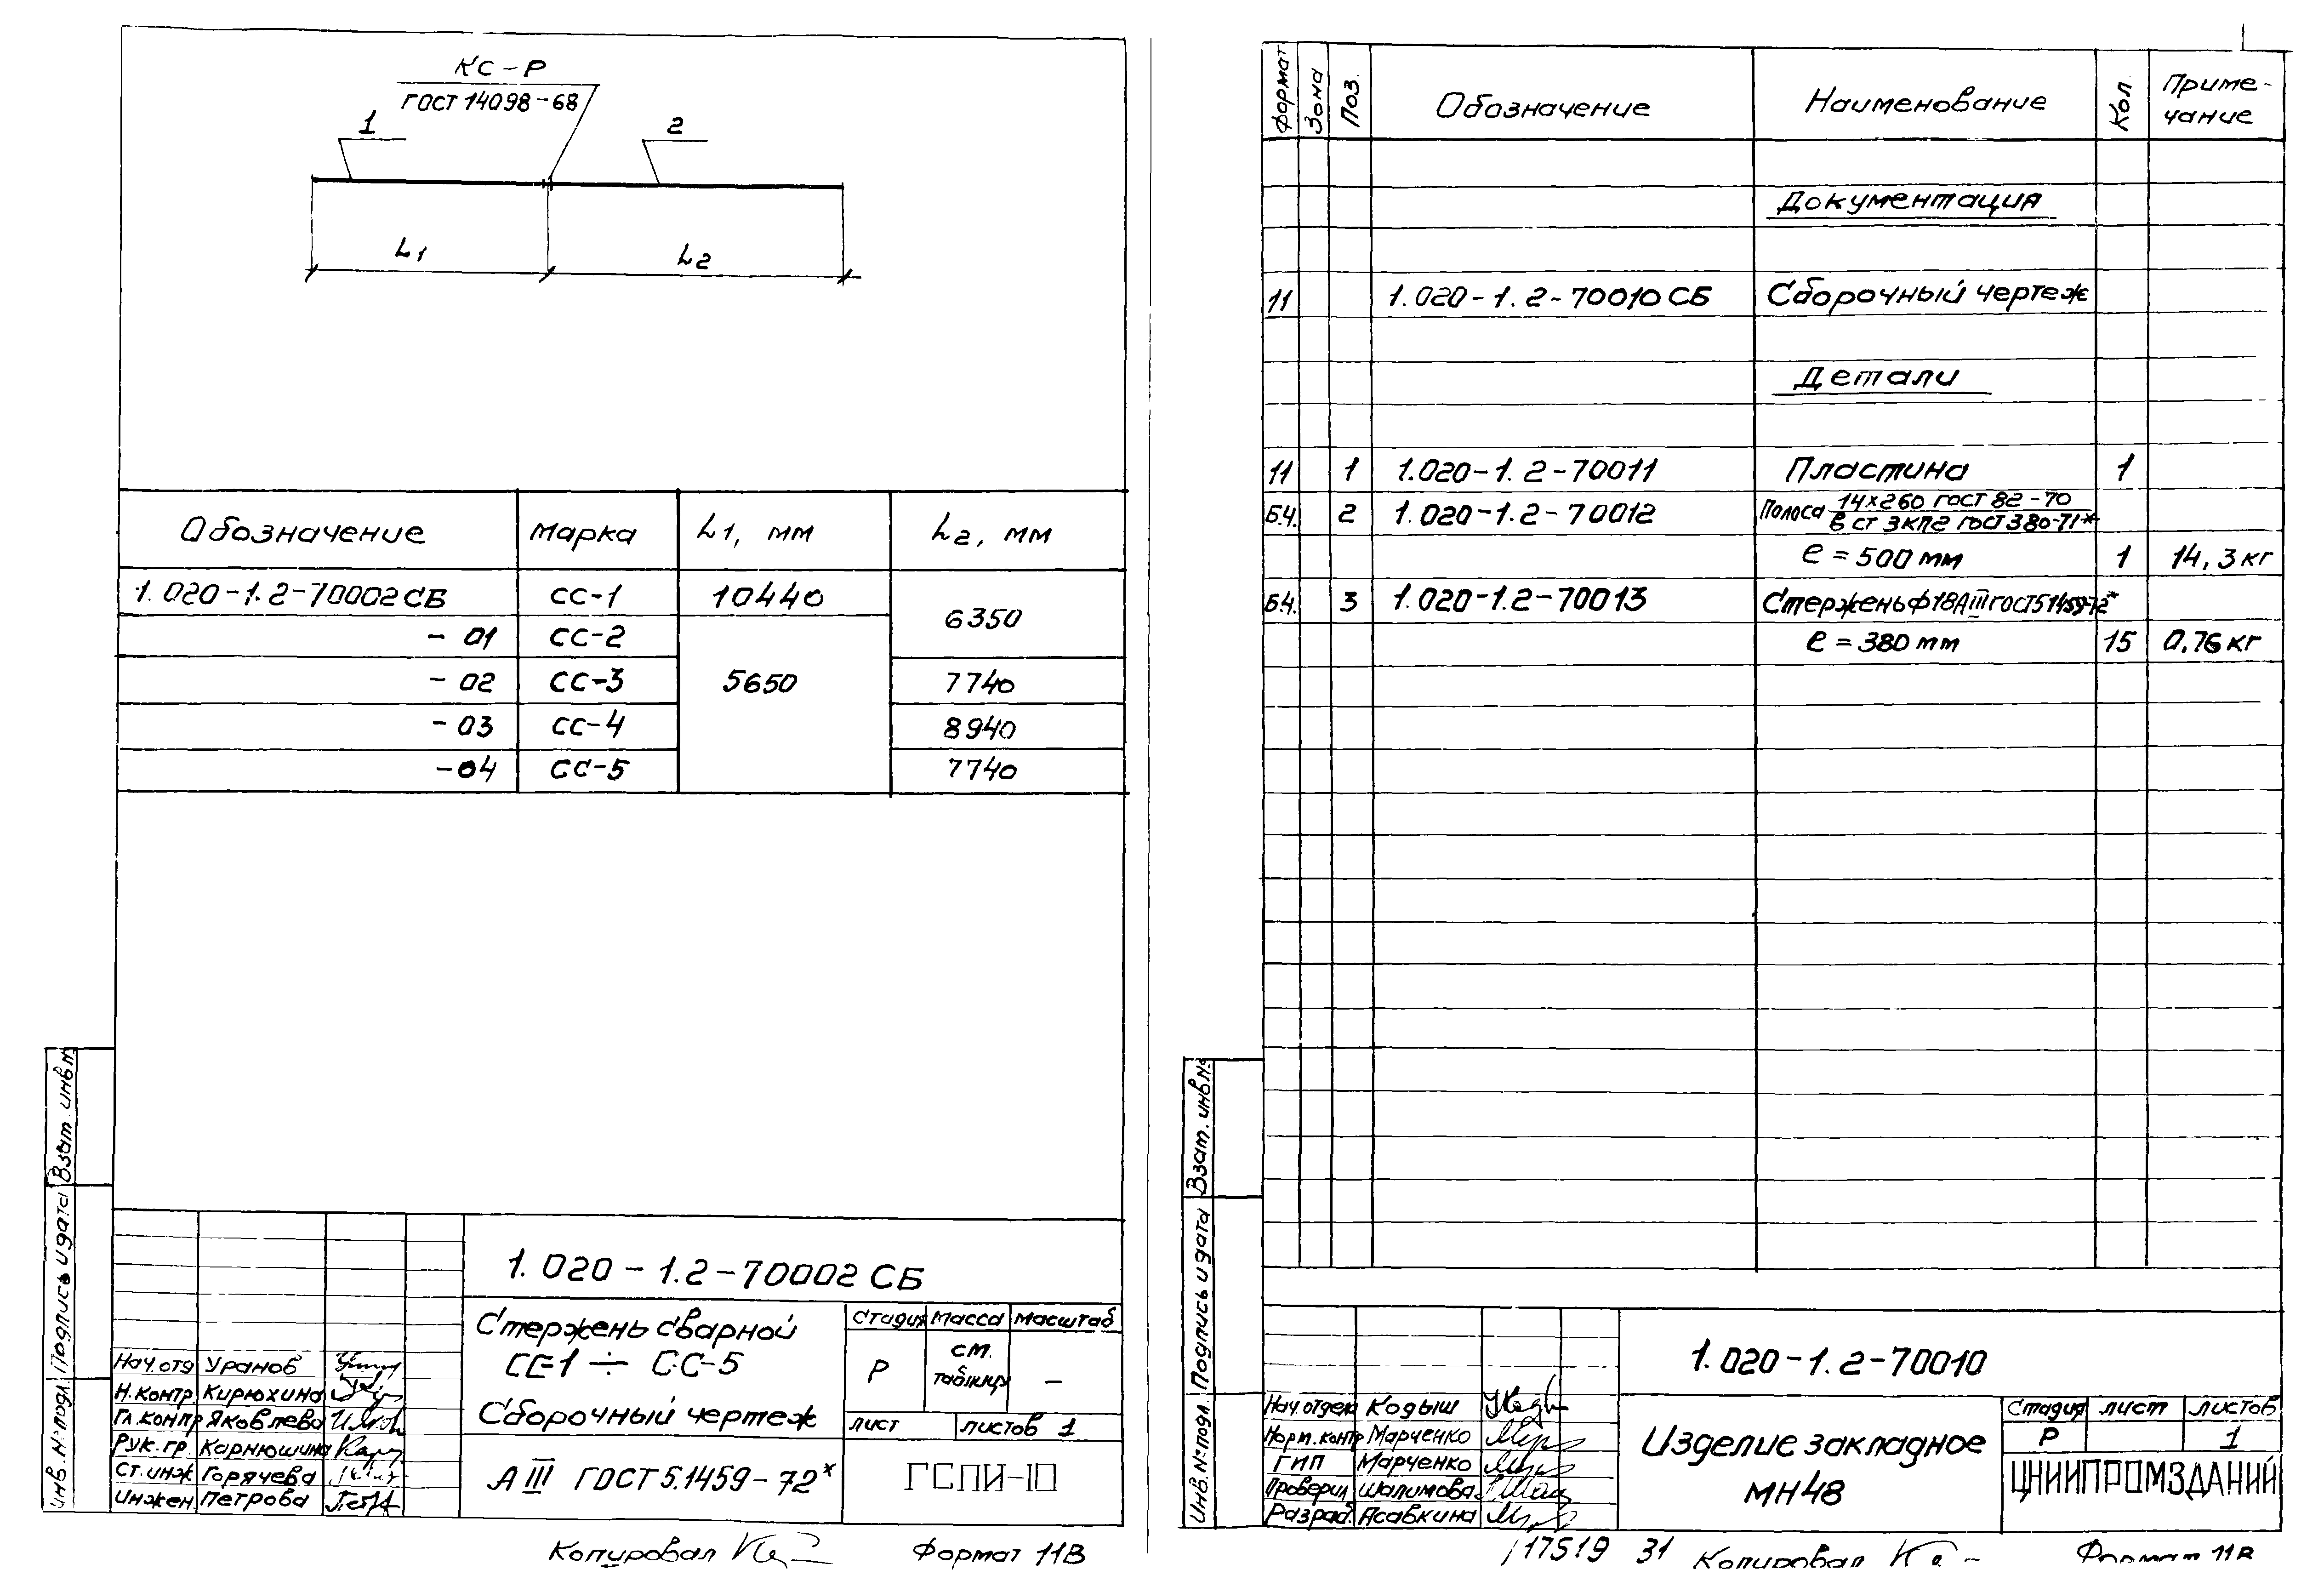 КС-Р
ГОСТ 14098-68
1
2
L1
L2
Обозначение Марка L1, мм L2, мм
1.020-1.2-70002СБ СС-1 10440 6350
- 01 СС-2
- 02 СС-3 5650 7740
- 03 СС-4 8940
- 04 СС-5 7740
Взам. инв.№
Подпись и дата
Инв.№подл.
1.020-1.2-70002 СБ
Стержень сварной
СС-1 ÷ СС-5
Сборочный чертеж
Стадия Масса Масштаб
Р см. таблицу –
лист листов 1
Нач.отд Уранов
Н.контр. Кирюхина
Гл.контр Яковлева
Рук.гр. Карнюшина
Ст.инж Горячева
Инжен Петрова
А III ГОСТ 5.1459-72*
ГСПИ-10
Копировал
Формат 11В
Формат Зона Поз. Обозначение Наименование Кол. Приме-
чание
Документация
11 1.020-1.2-70010СБ Сборочный чертеж
Детали
11 1 1.020-1.2-70011 Пластина 1
Б.Ч. 2 1.020-1.2-70012 Полоса 14х260 ГОСТ 82-70
В СТ 3КП2 ГОСТ 380-71*
ℓ = 500 мм 1 14,3 кг
Б.Ч. 3 1.020-1.2-70013 Стержень ф18АIII ГОСТ5.1459-72*
ℓ = 380 мм 15 0,76 кг
Взам. инв.№
Подпись и дата
Инв.№подл.
1.020-1.2-70010
Нач.отдел Кодыш
Норм.контр Марченко
ГИП Марченко
Проверил Шалимова
Разраб. Асавкина
Изделие закладное
МН48
Стадия лист листов
Р 1
ЦНИИПРОМЗДАНИЙ
17519 31
Копировал
Формат 11В